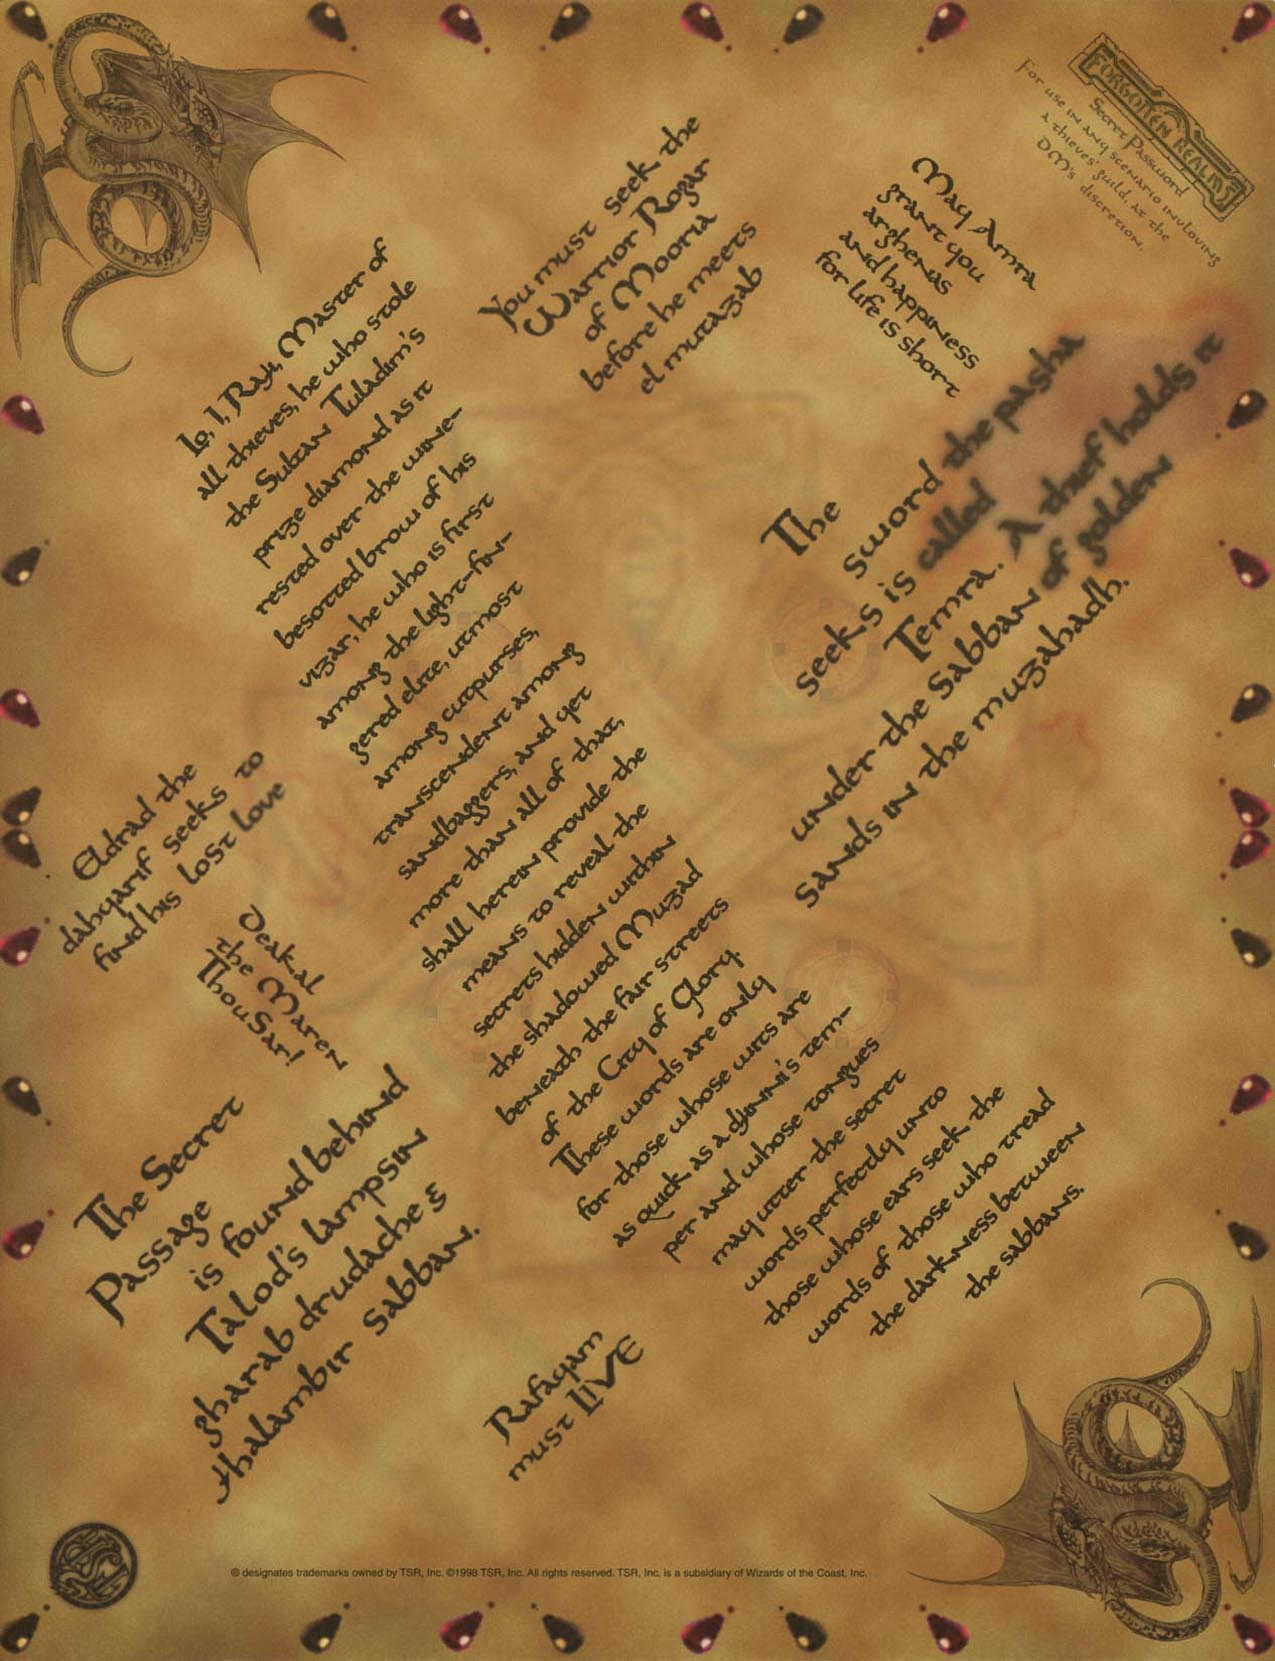 FORGOTTEN REALMS
Secret Password
For use in any scenario involving
a thieves' guild, at the
DM's discretion.
You must seek the
Warrior Rogar
of Mooria
before he meets
el mutazab
May Amra
grant you
arghenas
and happiness
for life is short
Lo, I, Raji, Master of
all thieves, he who stole
the Sultan Tuladim's
prize diamond as it
rested over the wine-
besotted brow of his
vizar, he who is first
among the light-fin-
gered elite, utmost
among cutpurses,
transcendent among
sandbaggers, and yet
more than all of that,
shall herein provide the
means to reveal the
secrets hidden within
the shadowed Muzad
beneath the fair streets
of the City of Glory.
These words are only
for those whose wits are
as quick as a djinni's tem-
per and whose tongues
may utter the secret
words perfectly unto
those whose ears seek the
words of those who tread
the darkness between
the sabbans.
The
sword the pasha
seeks is called
Temra. A thief holds it
under the Sabban of golden
sands in the muzahadh.
Eldrad the
dahyarif seeks to
find his lost love
Deakal
the Maren
ThouSar!
The Secret
Passage
is found behind
Talod's lampsin
gharab drudache &
thalambir Sabban.
Rafayam
must LIVE
® designates trademarks owned by TSR, Inc. ©1998 TSR, Inc. All rights reserved. TSR, Inc. is a subsidiary of Wizards of the Coast, Inc.